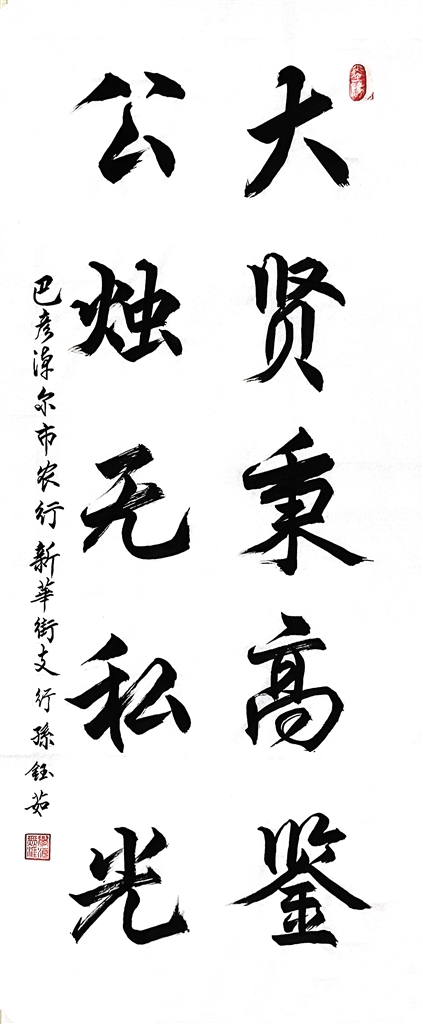 大贤秉高鉴
公烛无私光
巴彦淖尔市农行新華街支行孫鈺茹